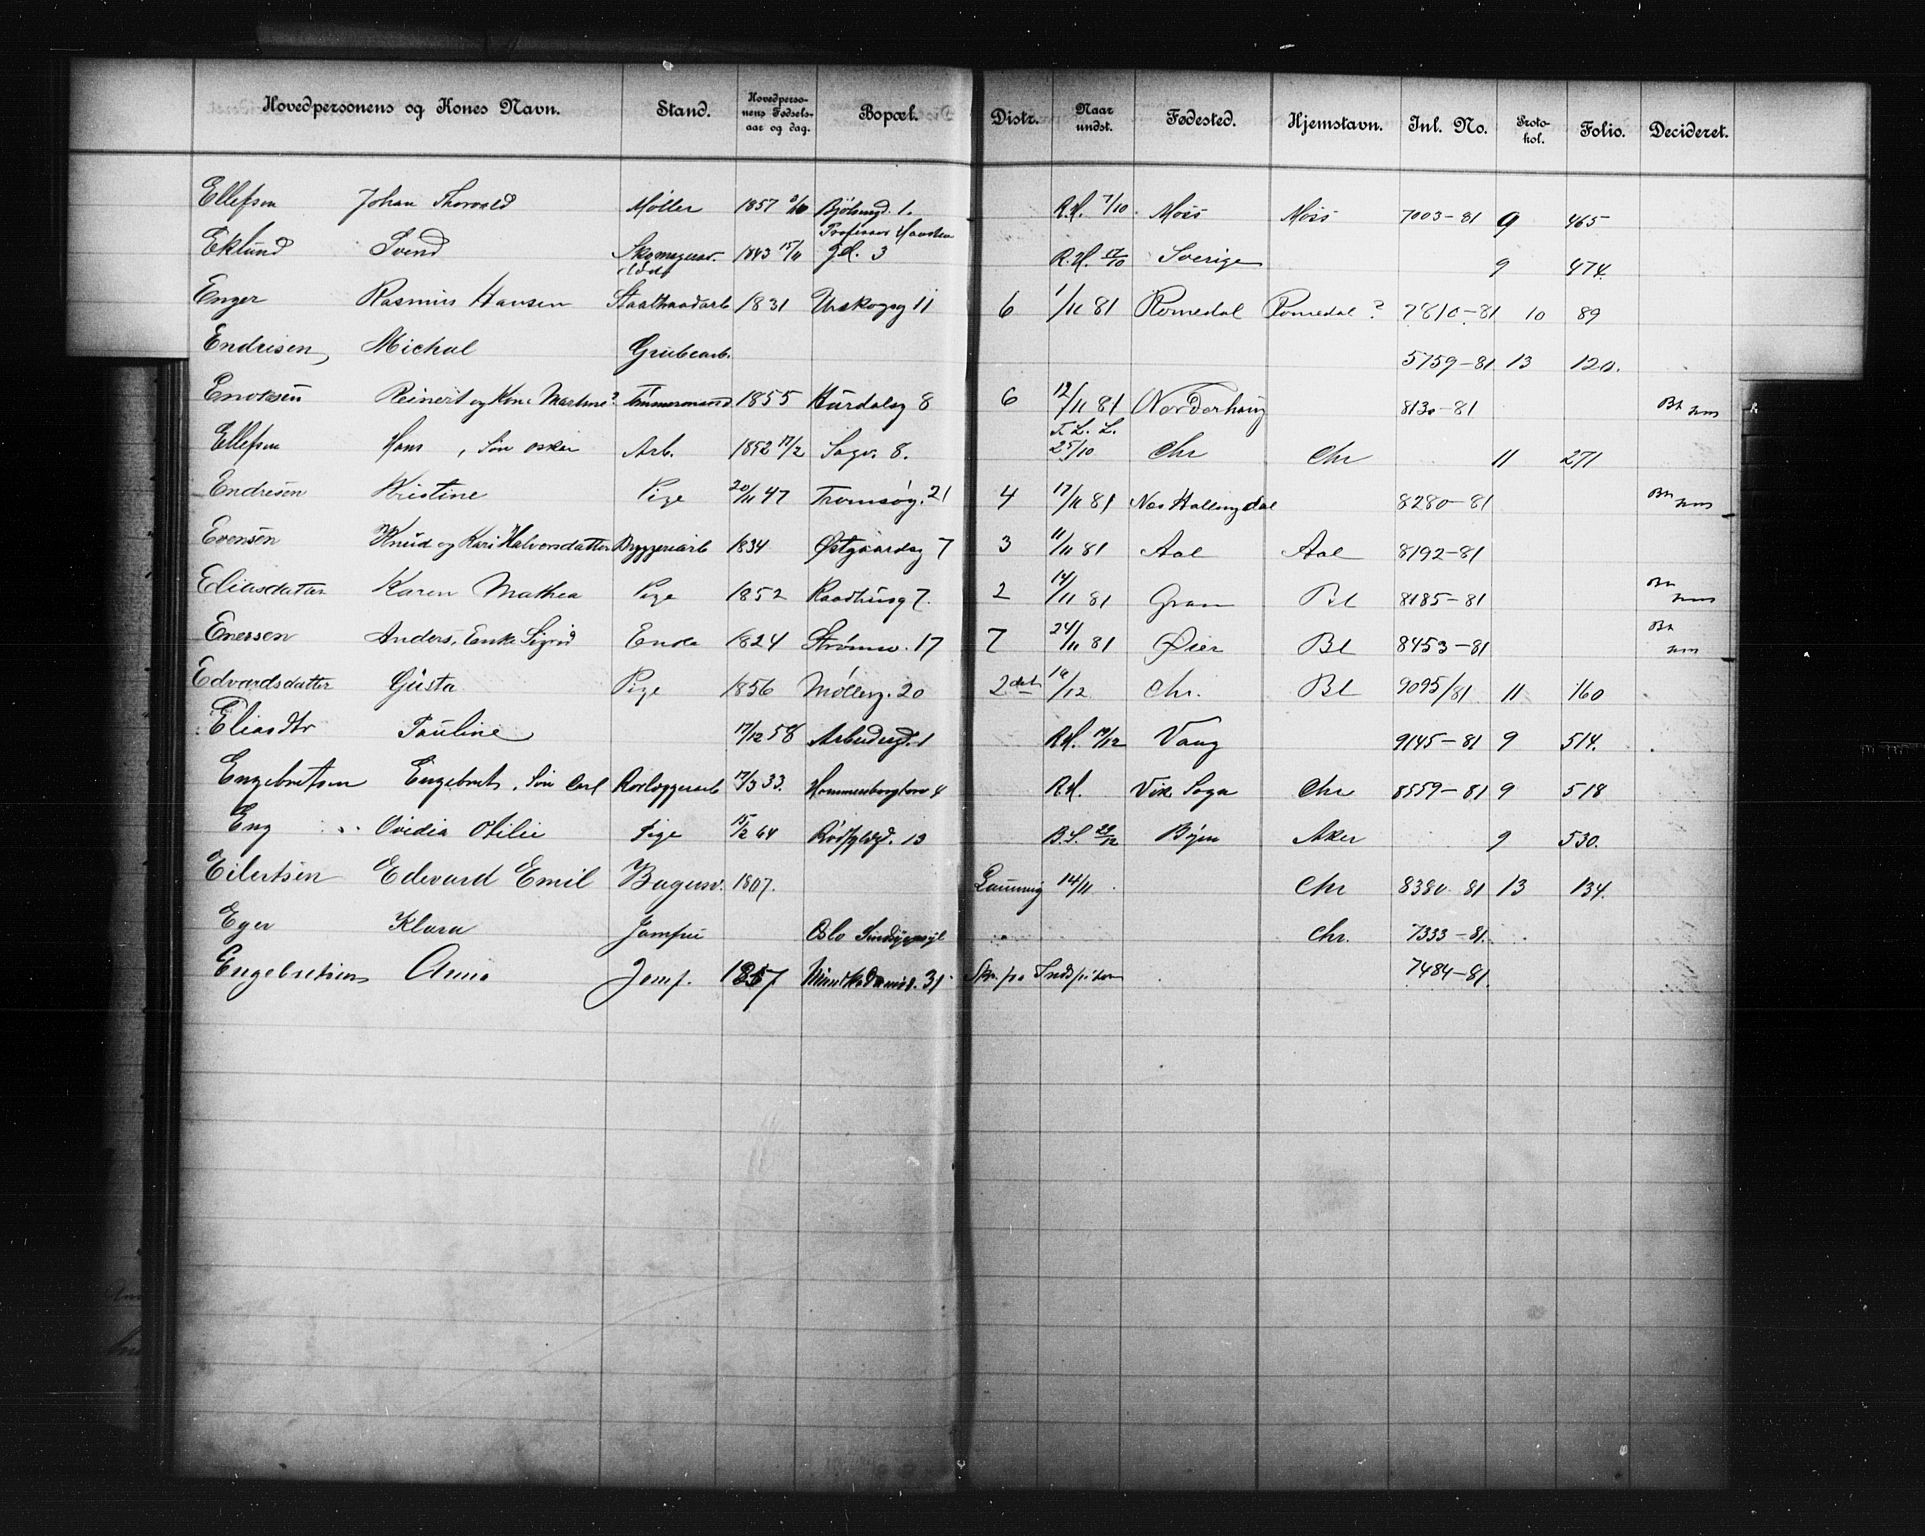 Hovedpersonens og Kones Navn. Stand. Hovedpersonens Fødselsaar og dag. Bopæl. Distr. Naar undst. Fødested. Hjemstavn. Inl. No. Protokol. Folio. Decideret.
Ellefsen Johan Thorvald Møller 1857 Bjølsengd. 1. R.H. 7/10 Moss Moss 7003-81 9 465
Eklund Svend 1843 15/11 gd. 3 R.H. Sverige 9 474.
Enger Rasmus Hansen 1831 Urskogsg 11 6 1/11 81 Romedal Romedal ? 7810-81 10 89
Endresen, Michal Grubearb. 5759-81 13 120.
Reinert og Kone Martine? Tømmermand 1855 Hurdalsg 8 6 12/11 81 Norderhaug 8130-81
Ellefsen Hans, Søn Oskar Arb. 1852 17/2 Sagv. 8. F. L. L. 25/10 Chr Chr 11 271
Endresen Kristine Pige 20/11 47 Tromsøg. 21 4 17/11 81 Nes Hallingdal 8280-81
Evensen Knud og Kari Halvorsdatter Bryggeriarb 1834 Østgaardsg 7 3 11/11 81 Aal Aal 8192-81
Eliasdatter Karen Mathea Pige 1852 Raadhusg 7. 2 14/11 81 Gran Bl 8185-81
Enersen Anders, Enke Sigrid Enke 1824 Strømsv. 17 7 24/11 81 Øier Bl 8453-81
Edvardsdatter Gusta Pige 1856 Møllerg. 20 2 /12 Chr. Bl 9095/81 11 160
Eliasdtr Pauline 17/12 58 Arbeidergd. 1 R.H. Vang 9145-81 9 514.
Engebretsen Engebret, Søn Carl Rørlæggerarb 17/3 33. Hammersborgtorv 4 R.H. Vik Sogn Chr 8559-81 9 518
Eng Ovidia Otilie Pige 15/2 64 13 B.L. 29/12 Aker 9 530.
Eilertsen Edevard Emil Bagersv. 1807. Laurvig 14/11 Chr 8380 81 13 134.
Eger Klara Jomfru Oslo Chr. 7333-81.
Engebretsen Anna Jomf. 1857 Munkedamsv. 31 7484-81.